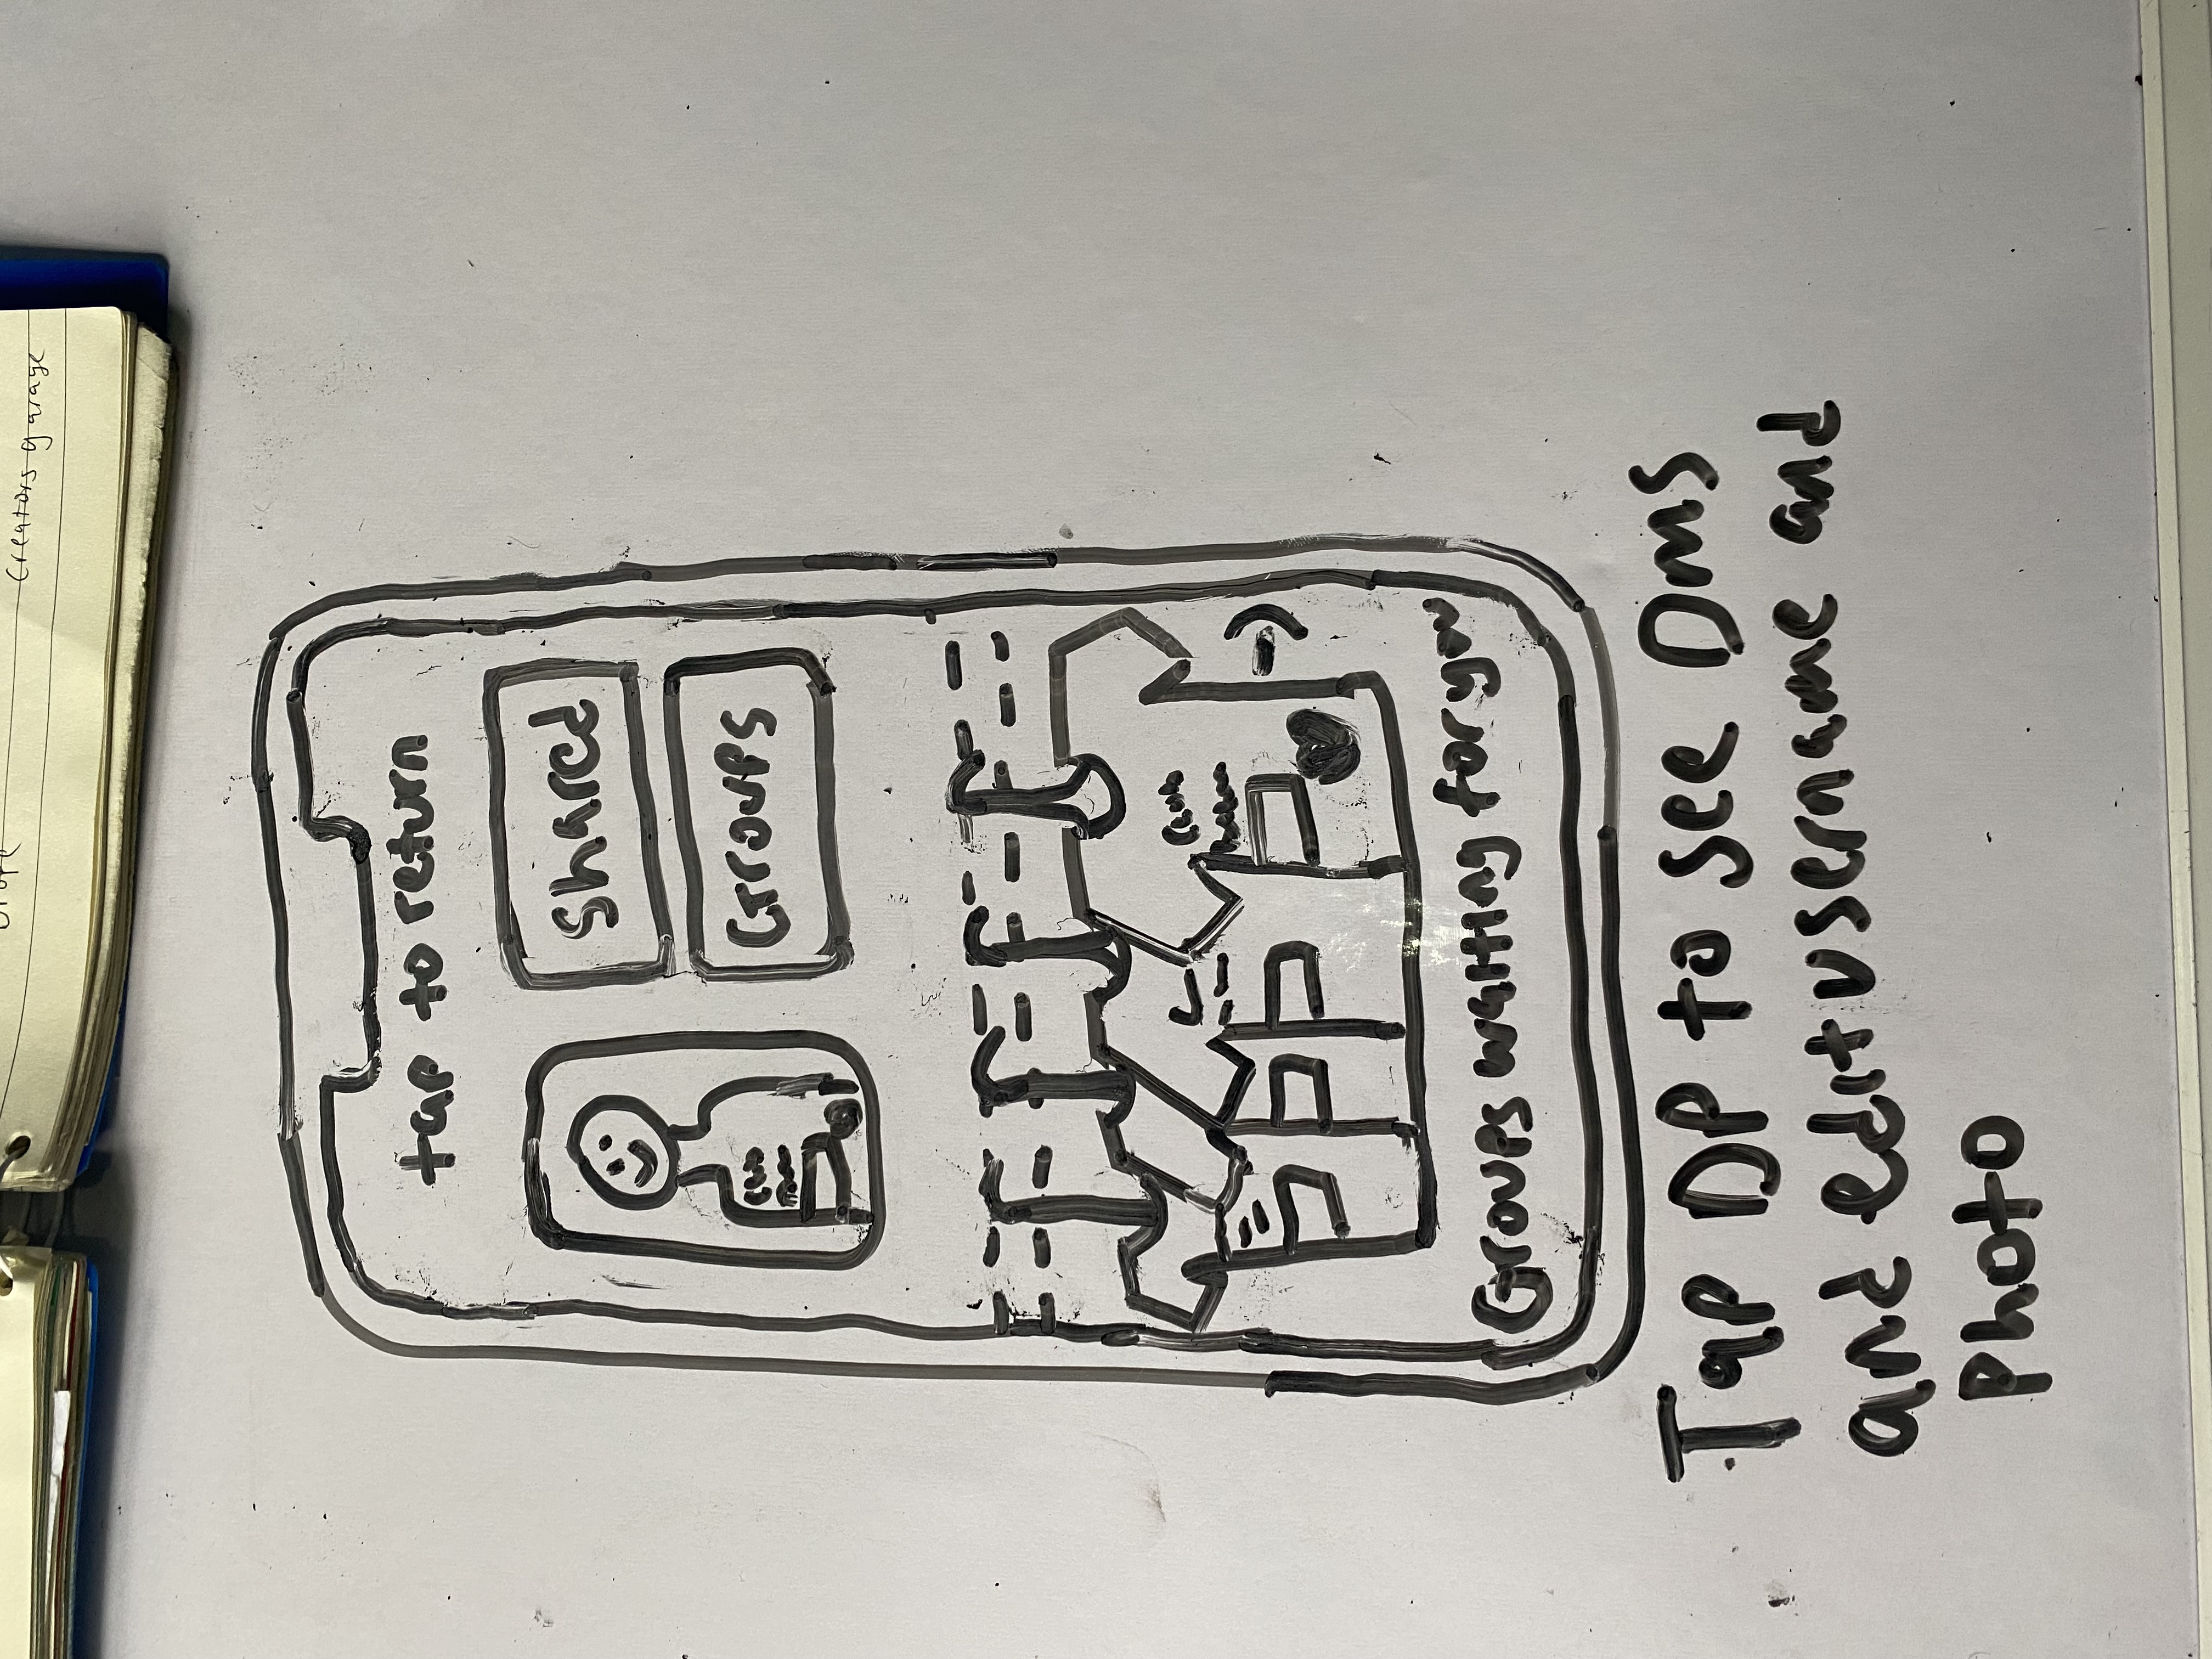 Creators garage
tap to return
Shared
Groups
Groups waiting for you
Tap DP to see Dms
and edit username and
Photo